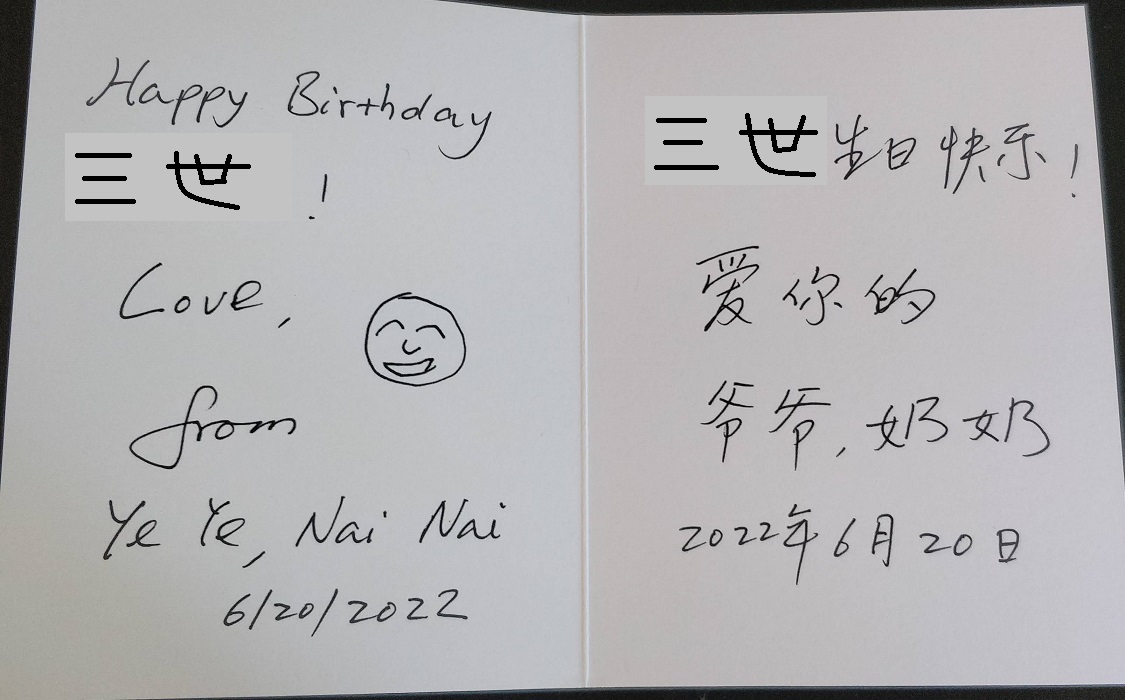 Happy Birthday
三世!
Love,
from
Ye Ye, Nai Nai
6/20/2022
三世生日快乐!
爱你的
爷爷,奶奶
2022年6月20日